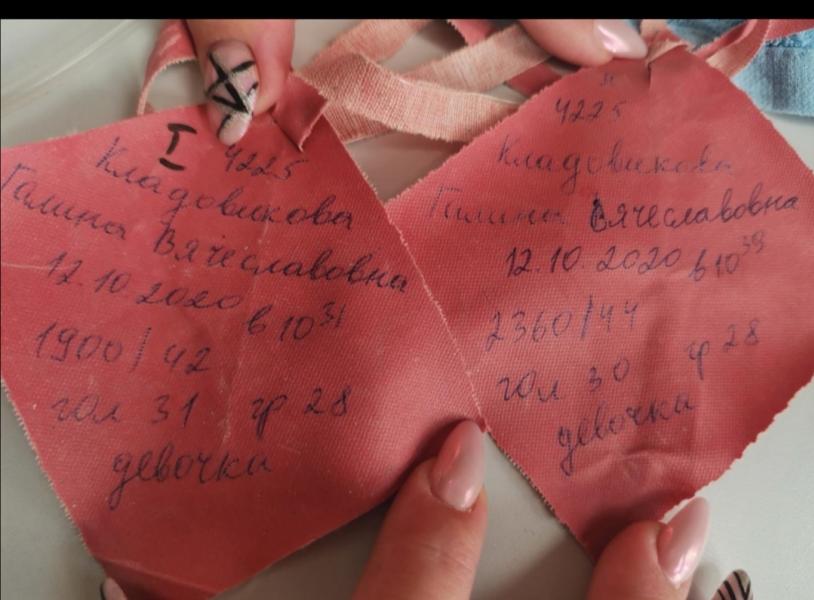 I 4225
Кладовикова
Галина Вячеславовна
12.10.2020 в 10 31
1900/42
гол 31 гр 28
девочка
II
4225
Кладовикова
Галина Вячеславовна
12.10.2020 в 10 39
2360/44
гол 30 гр 28
девочка